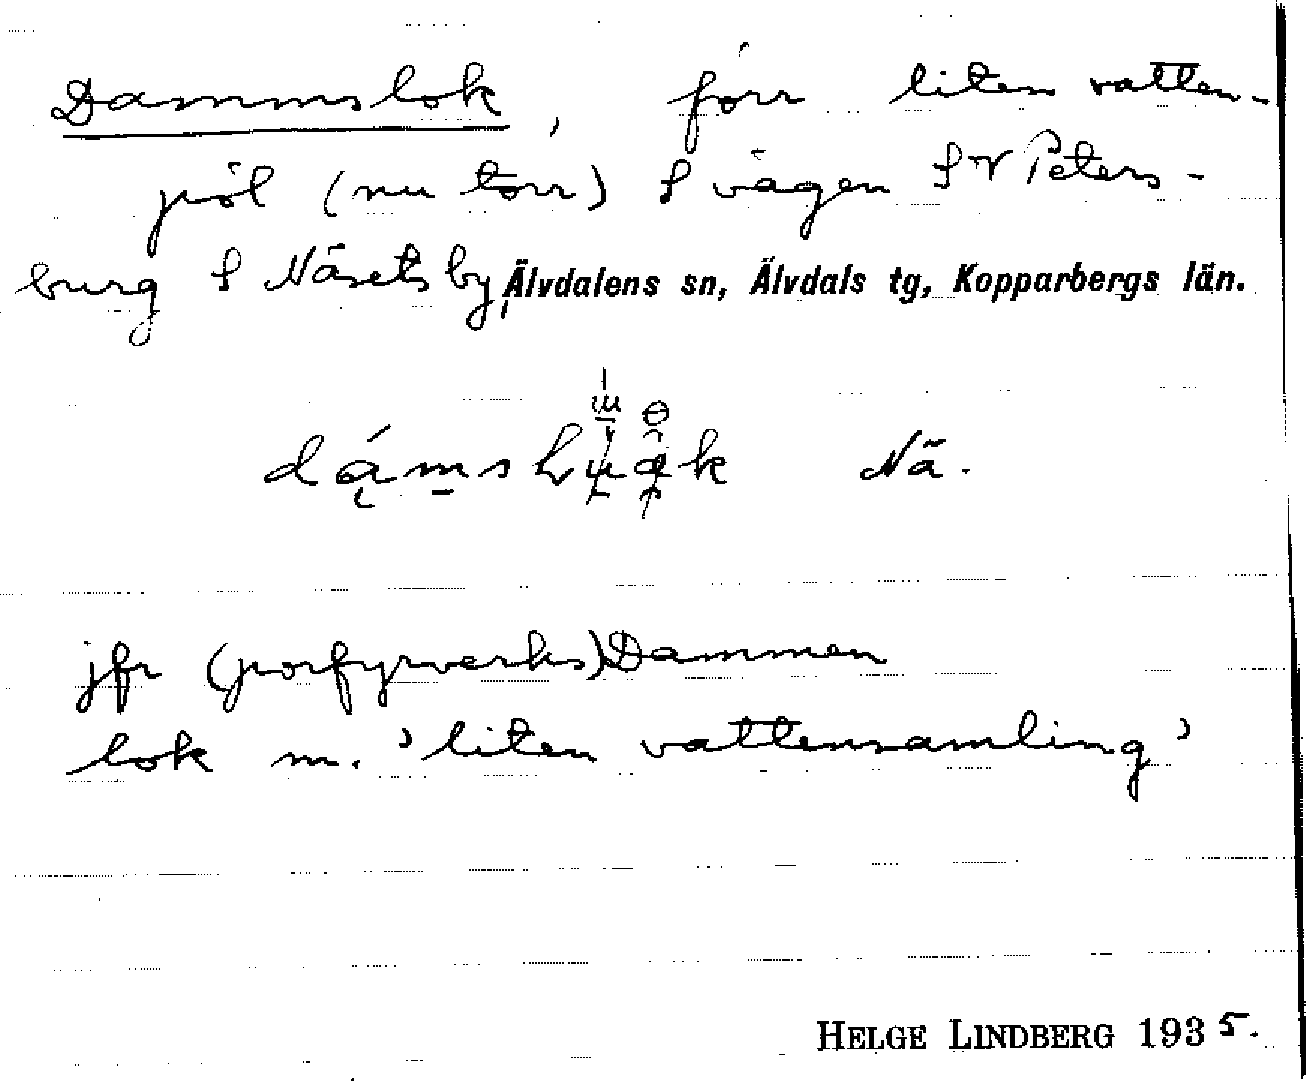 Dammslok, förr liten vatten-
pöl (nu torr) S vägen SV Peters-
burg S Näsets by, Älvdalens sn, Älvdals tg, Kopparbergs län.
Nä.
jfr (porfyrverks)Dammen
lok m. 'liten vattensamling'
HELGE LINDBERG 1935.